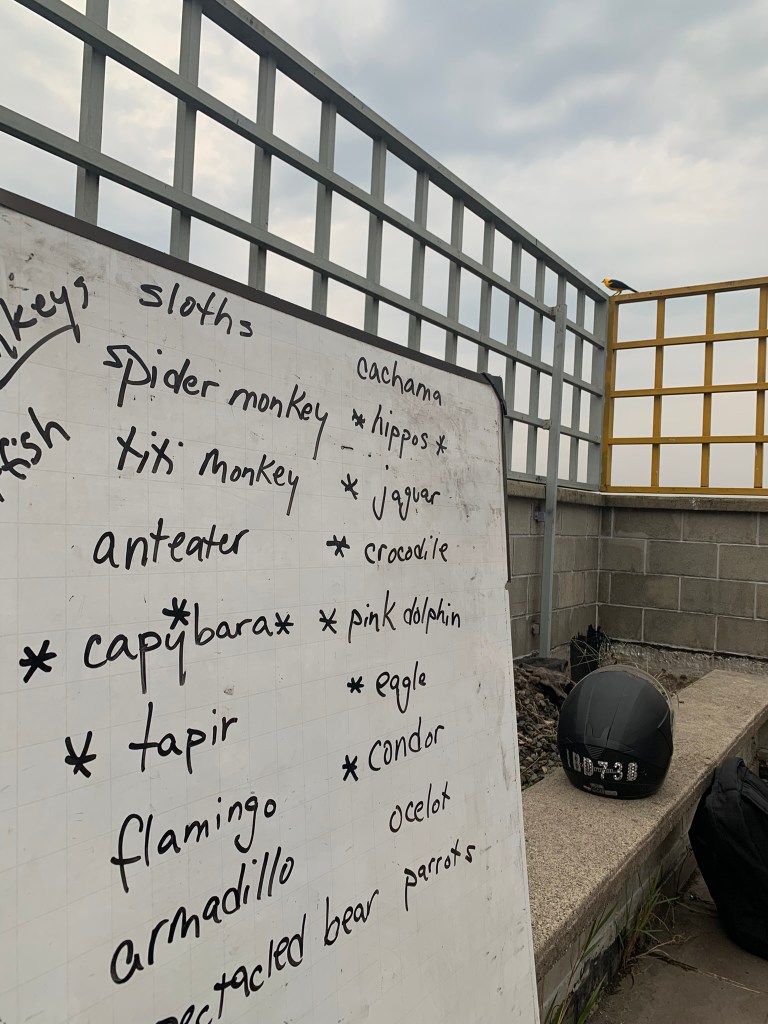 sloths
spider monkey
titi monkey
anteater
* capybara *
*
* tapir
flamingo
armadillo
bear
cachama
* hippos *
* jaguar
* crocodile
* pink dolphin
* eagle
* condor
ocelot
parrots